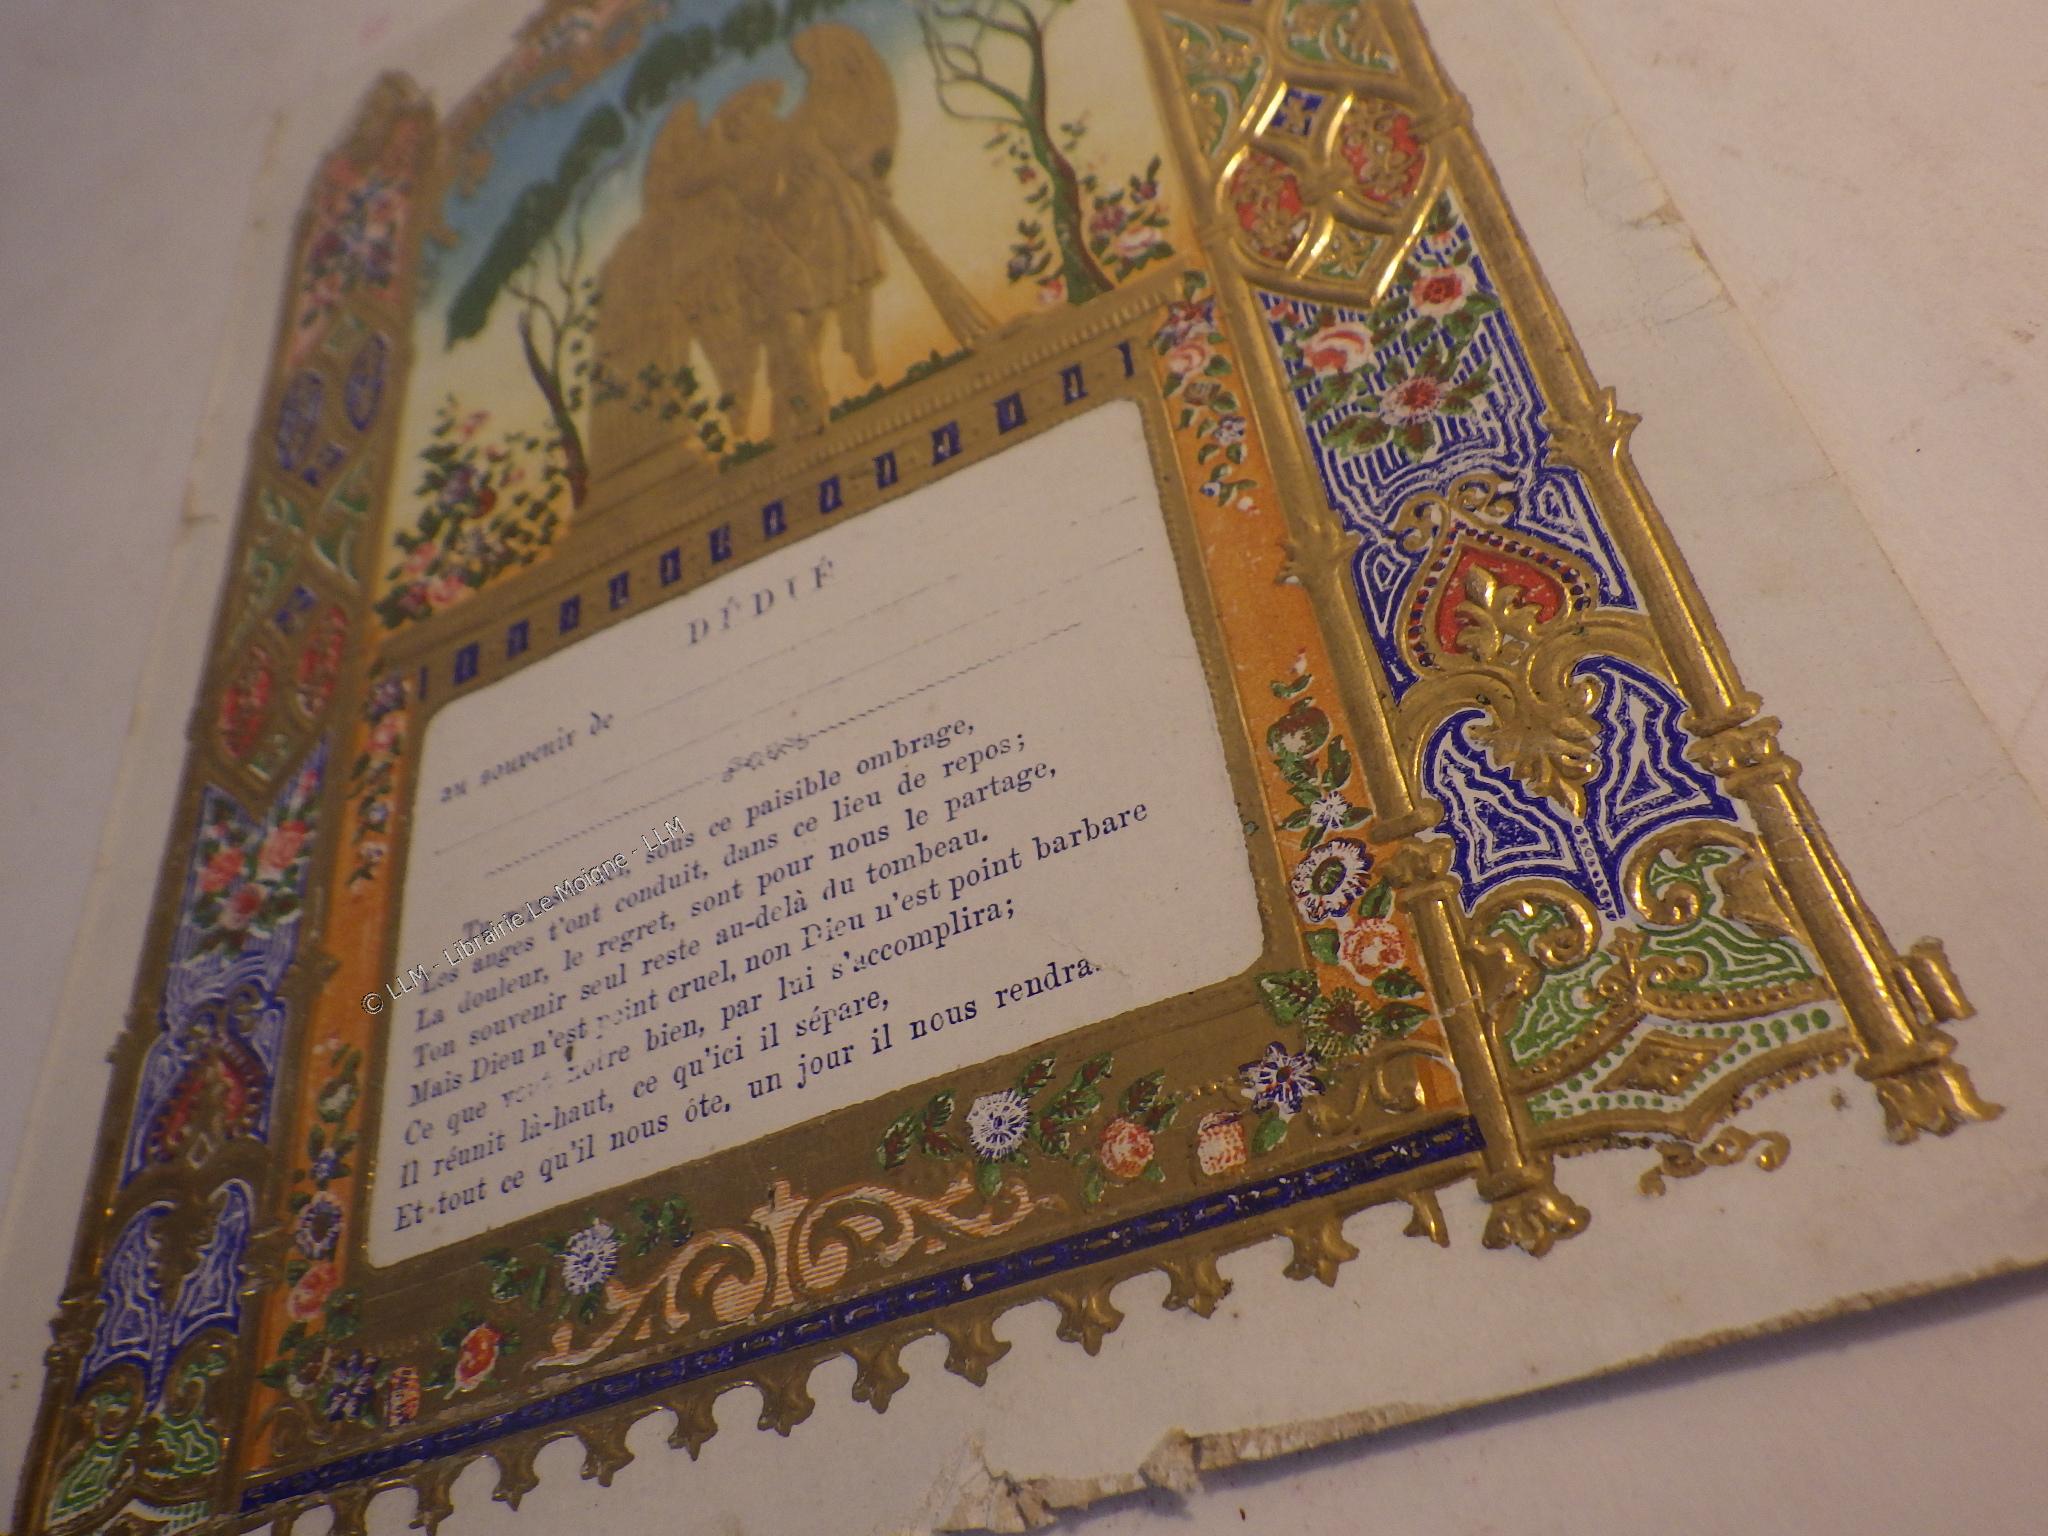 DÉDIÉ
au souvenir de
sous ce paisible ombrage,
Les anges t'ont conduit, dans ce lieu de repos;
La douleur, le regret, sont pour nous le partage,
Ton souvenir seul reste au-delà du tombeau.
Mais Dieu n'est point cruel, non Dieu n'est point barbare
Ce que veut notre bien, par lui s'accomplira;
Il réunit là-haut, ce qu'ici il sépare,
Et tout ce qu'il nous ôte, un jour il nous rendra.
© LLM - Librairie Le Moigne - LLM